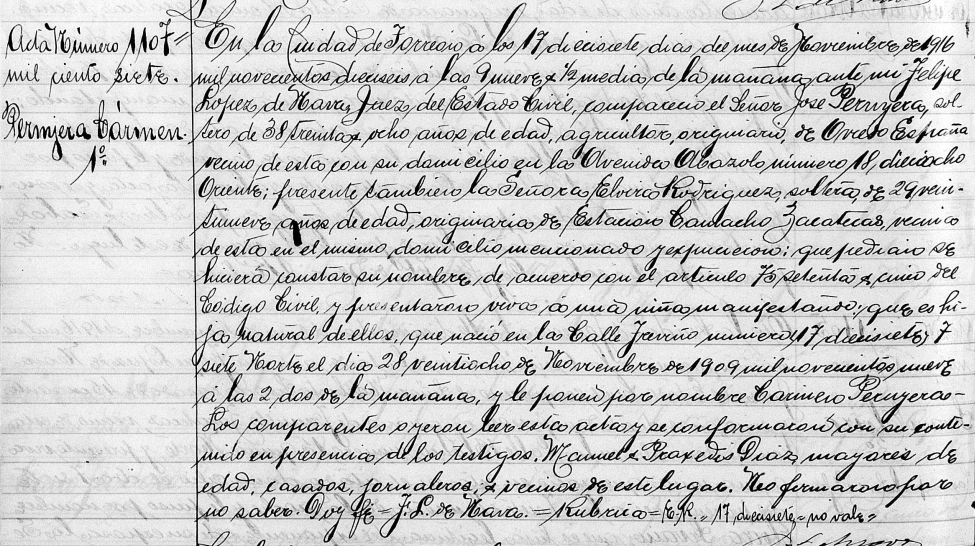 Acta Número 1107=
mil ciento siete.
Peruyera Cármen.
1º
En la Ciudad de Torreon á los 17 diecisiete dias del mes de Noviembre de 1916
mil novecientos dieciseis á las 9 nueve & ½ media de la mañana, ante mi Felipe
Lopez de Nava, Juez del Estado Civil, compareció el Señor José Peruyera, sol-
tero de 38 treinta & ocho años de edad, agricultor, originario de Oviedo España
vecino de esta con su domicilio en la Avenida Abasolo número 18, dieciocho
Oriente; presente tambien la Señora Elvira Rodriguez, soltera, de 29 vein-
tinueve años de edad, originaria de Estacion Camacho Zacatecas, vecina
de esta en el mismo domicilio mencionado y expusieron: que pedian se
hiciera constar su nombre, de acuerdo con el articulo 75 setenta & cinco del
Código Civil, y presentaron viva á una niña manifestando: que es hi-
ja natural de ellos, que nació en la Calle Treviño número 17 diecisiete, 7
siete Norte el dia 28 veintiocho de Noviembre de 1909 mil novecientos nueve
á las 2 dos de la mañana, y le ponen por nombre Carmen Peruyera-
Los comparentes oyeron leer esta acta y se conformaron con su conte-
nido en presencia de los testigos, Manuel & Praxedis Diaz, mayores de
edad, casados, jornaleros, & vecinos de este lugar. No firmaron por
no saber. Doy fé = J. L. de Nava. = Rúbrica = E.R. = 17, diecisiete = no vale =